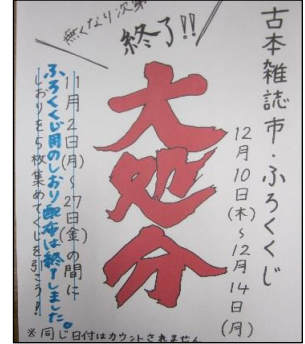 古本雑誌市・ふろくくじ
12月10日(木)~12月14日(月)
無くなり次第
終了!!
大処分
11月2日(月)~27日(金)の間に
ふろくくじ用のしおり配布は終了しました。
しおりを5枚集めてくじを引こう!!
※同じ日付はカウントされません